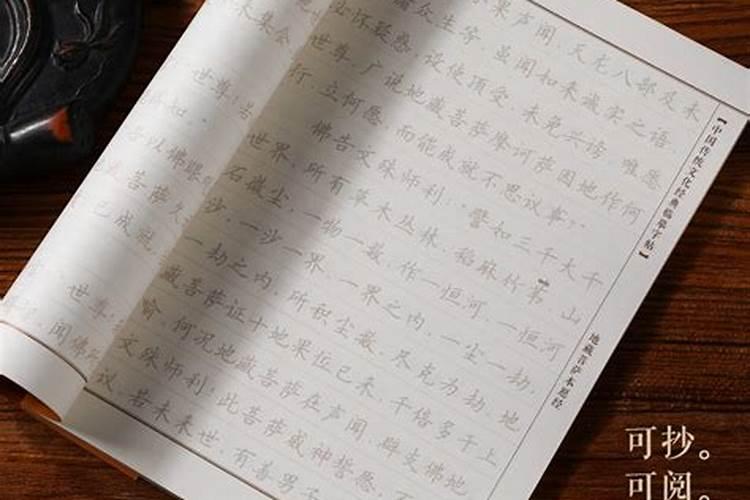 果声闻、天龙八部及未
众生等，虽闻如来诚实之语，
必怀疑惑。设使顶受，未免兴谤。唯愿
世尊，广说地藏菩萨摩诃萨因地作何
行，立何愿，而能成就不思议事？”
佛告文殊师利：“譬如三千大千
世界，所有草木丛林，稻麻竹苇，山
石微尘，一物一数，作一恒河；一恒河
沙，一沙一界；一界之内，一尘一劫；
一劫之内，所积尘数，尽充为劫。地
藏菩萨证十地果位已来，千倍多于上
喻，何况地藏菩萨在声闻、辟支佛地。
文殊师利！此菩萨威神誓愿，不
议。若未来世，有善男子
集会
世尊！若
所知。
吾以佛眼
菩萨久
已成就
世尊
闻佛所
【中国传统文化经典临摹字帖】
地藏菩萨本愿经
可抄。
可阅。